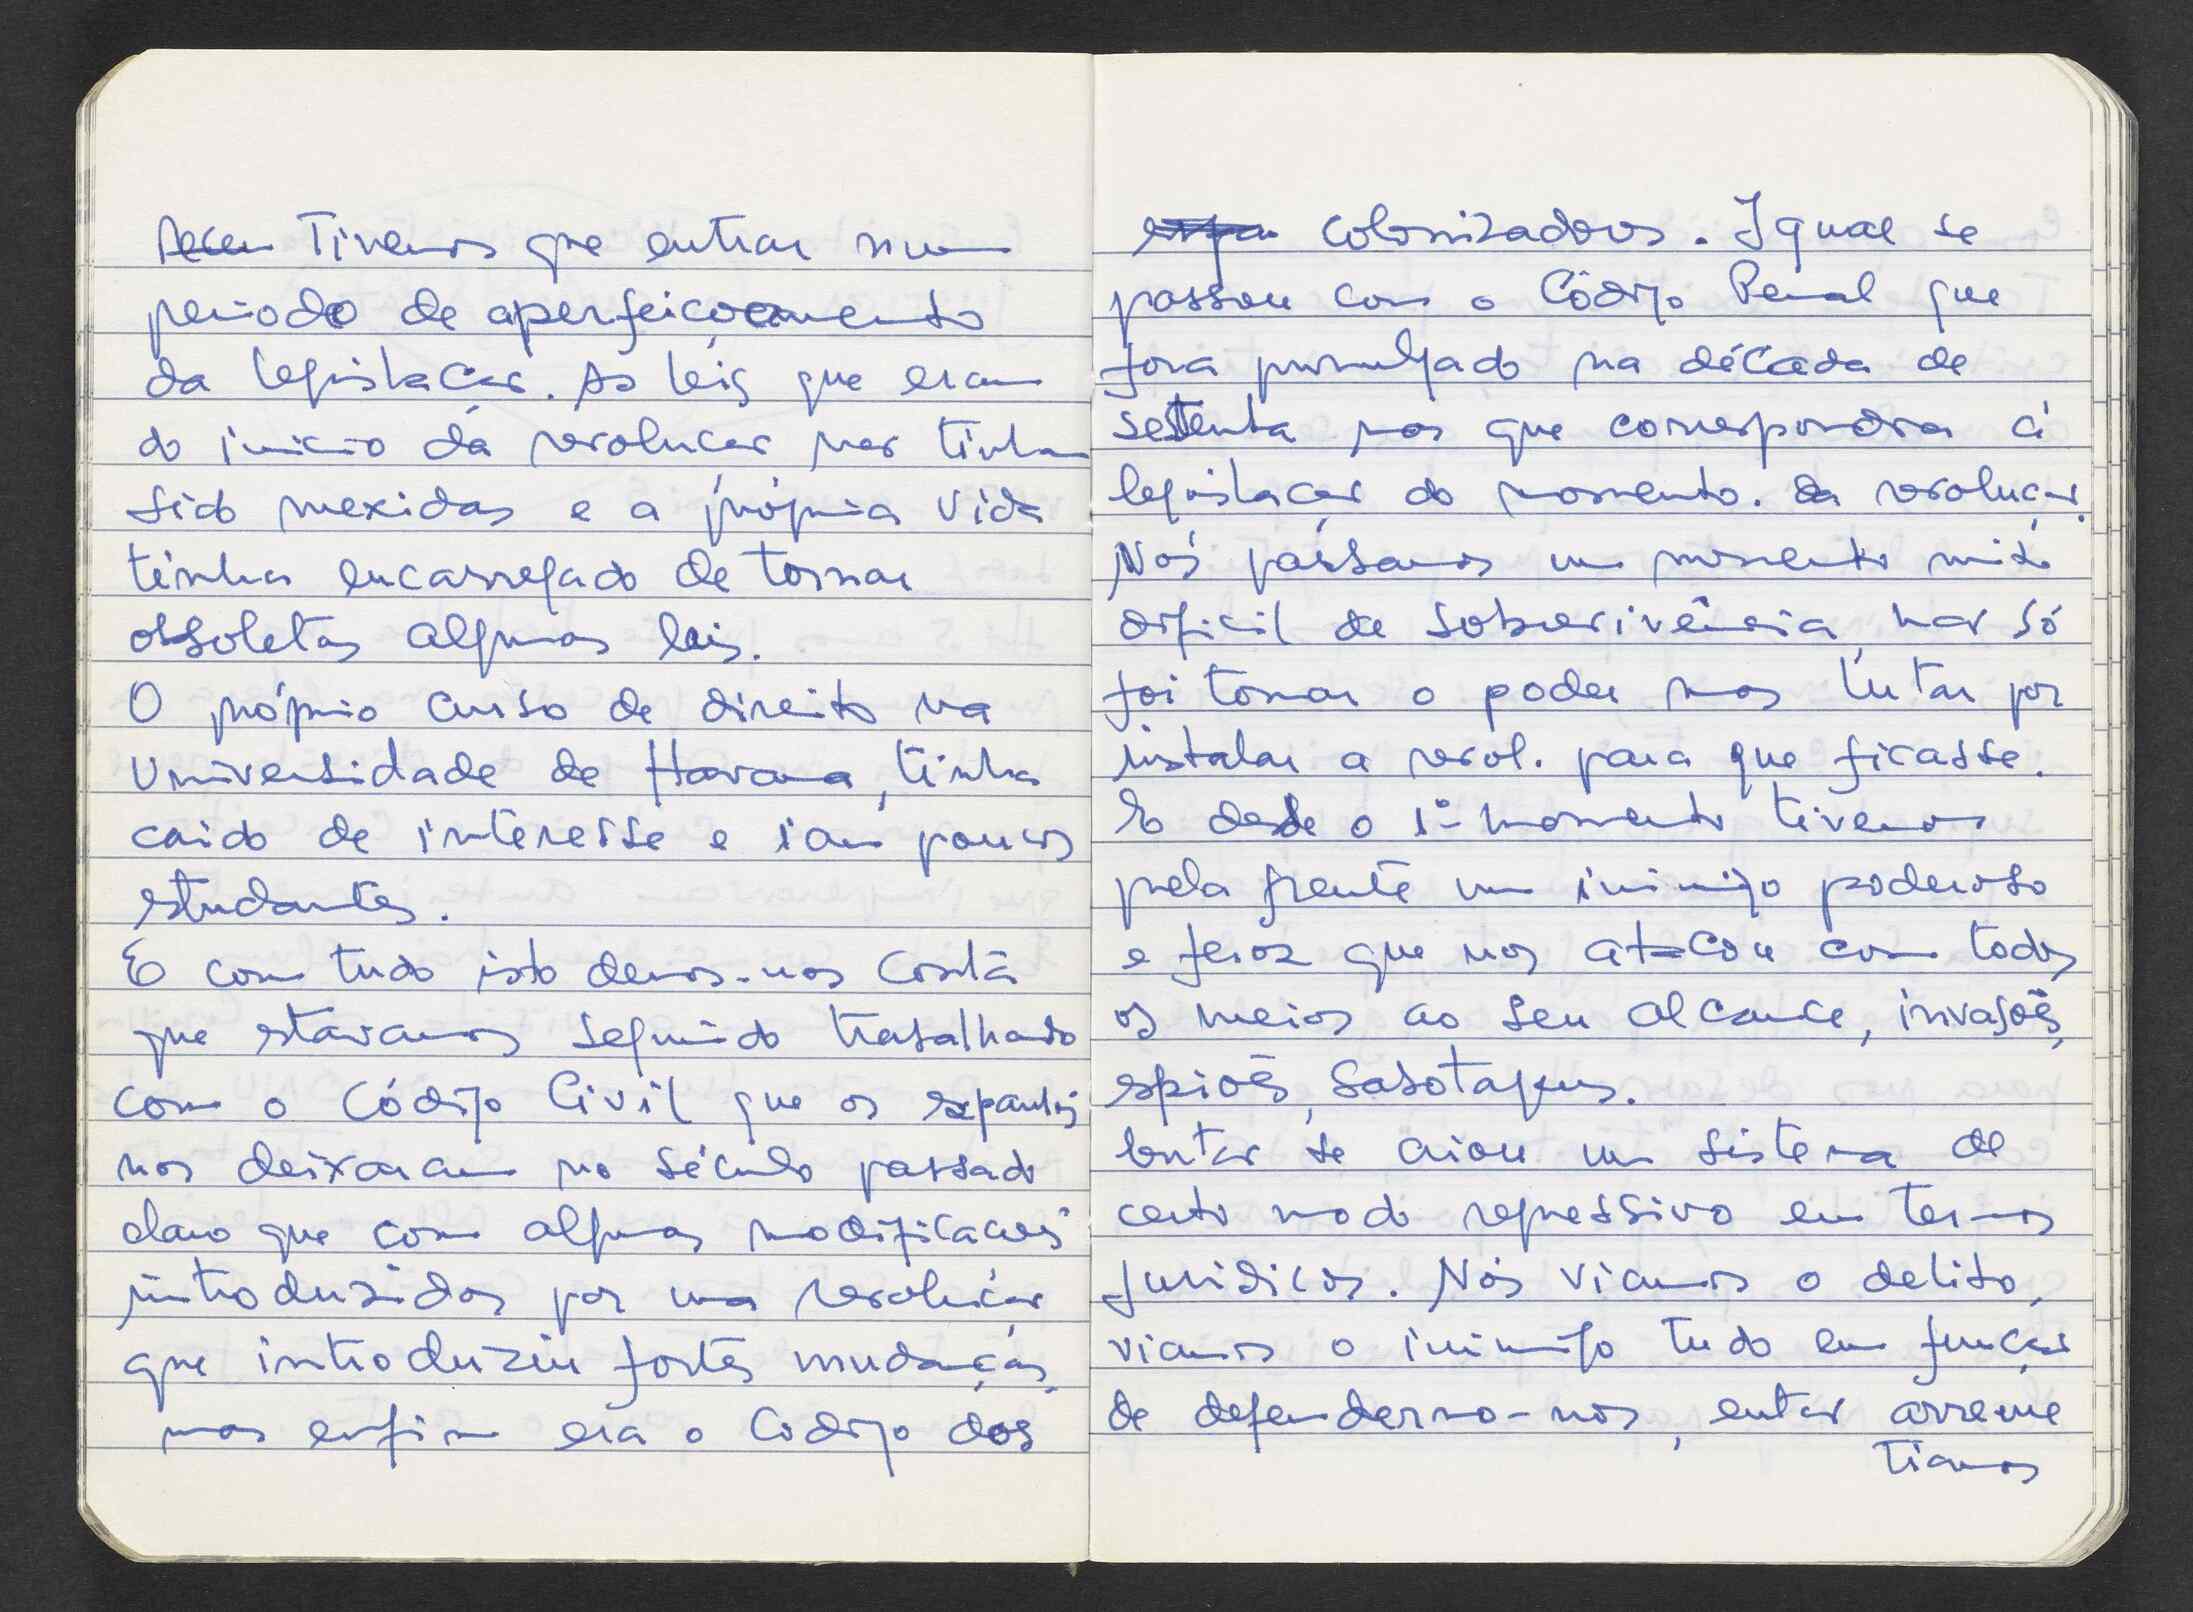 Tivemos que entrar num
periodo de aperfeiçoamento
da legislação. As leis que eram
do inicio da revolução não tinham
sido mexidas e a própria vida
tinha encarregado de tornar
obsoletas algumas leis.
O próprio curso de direito na
Universidade de Havana, tinha
caido de interesse e iam poucos
estudantes.
E com tudo isto demos-nos contá
que estavamos seguindo trabalhado
com o Código Civil que os espanhóis
nos deixaram no século passado
claro que com algumas modificações
introduzidas por uma revolução
que introduziu fortes mudanças,
mas enfim era o Codigo dos
colonizadores. Igual se
passou com o Código Penal que
fora promulgado na década de
setenta mas que correspondia á
legislação do momento. da revolução.
Nós passamos um momento muito
dificil de sobrevivência, não só
foi tomar o poder mas lutar por
instalar a revol. para que ficasse.
E desde o 1º momento tivemos
pela frente um inimigo poderoso
e feroz que nos atacou com todos
os meios ao seu alcance, invasões,
espiões, sabotagens.
Então se criou um sistema de
certo modo repressivo em termos
juridicos. Nós viamos o delito,
viamos o inimigo tudo em função
de defendermo-nos, então arreme
tiamos